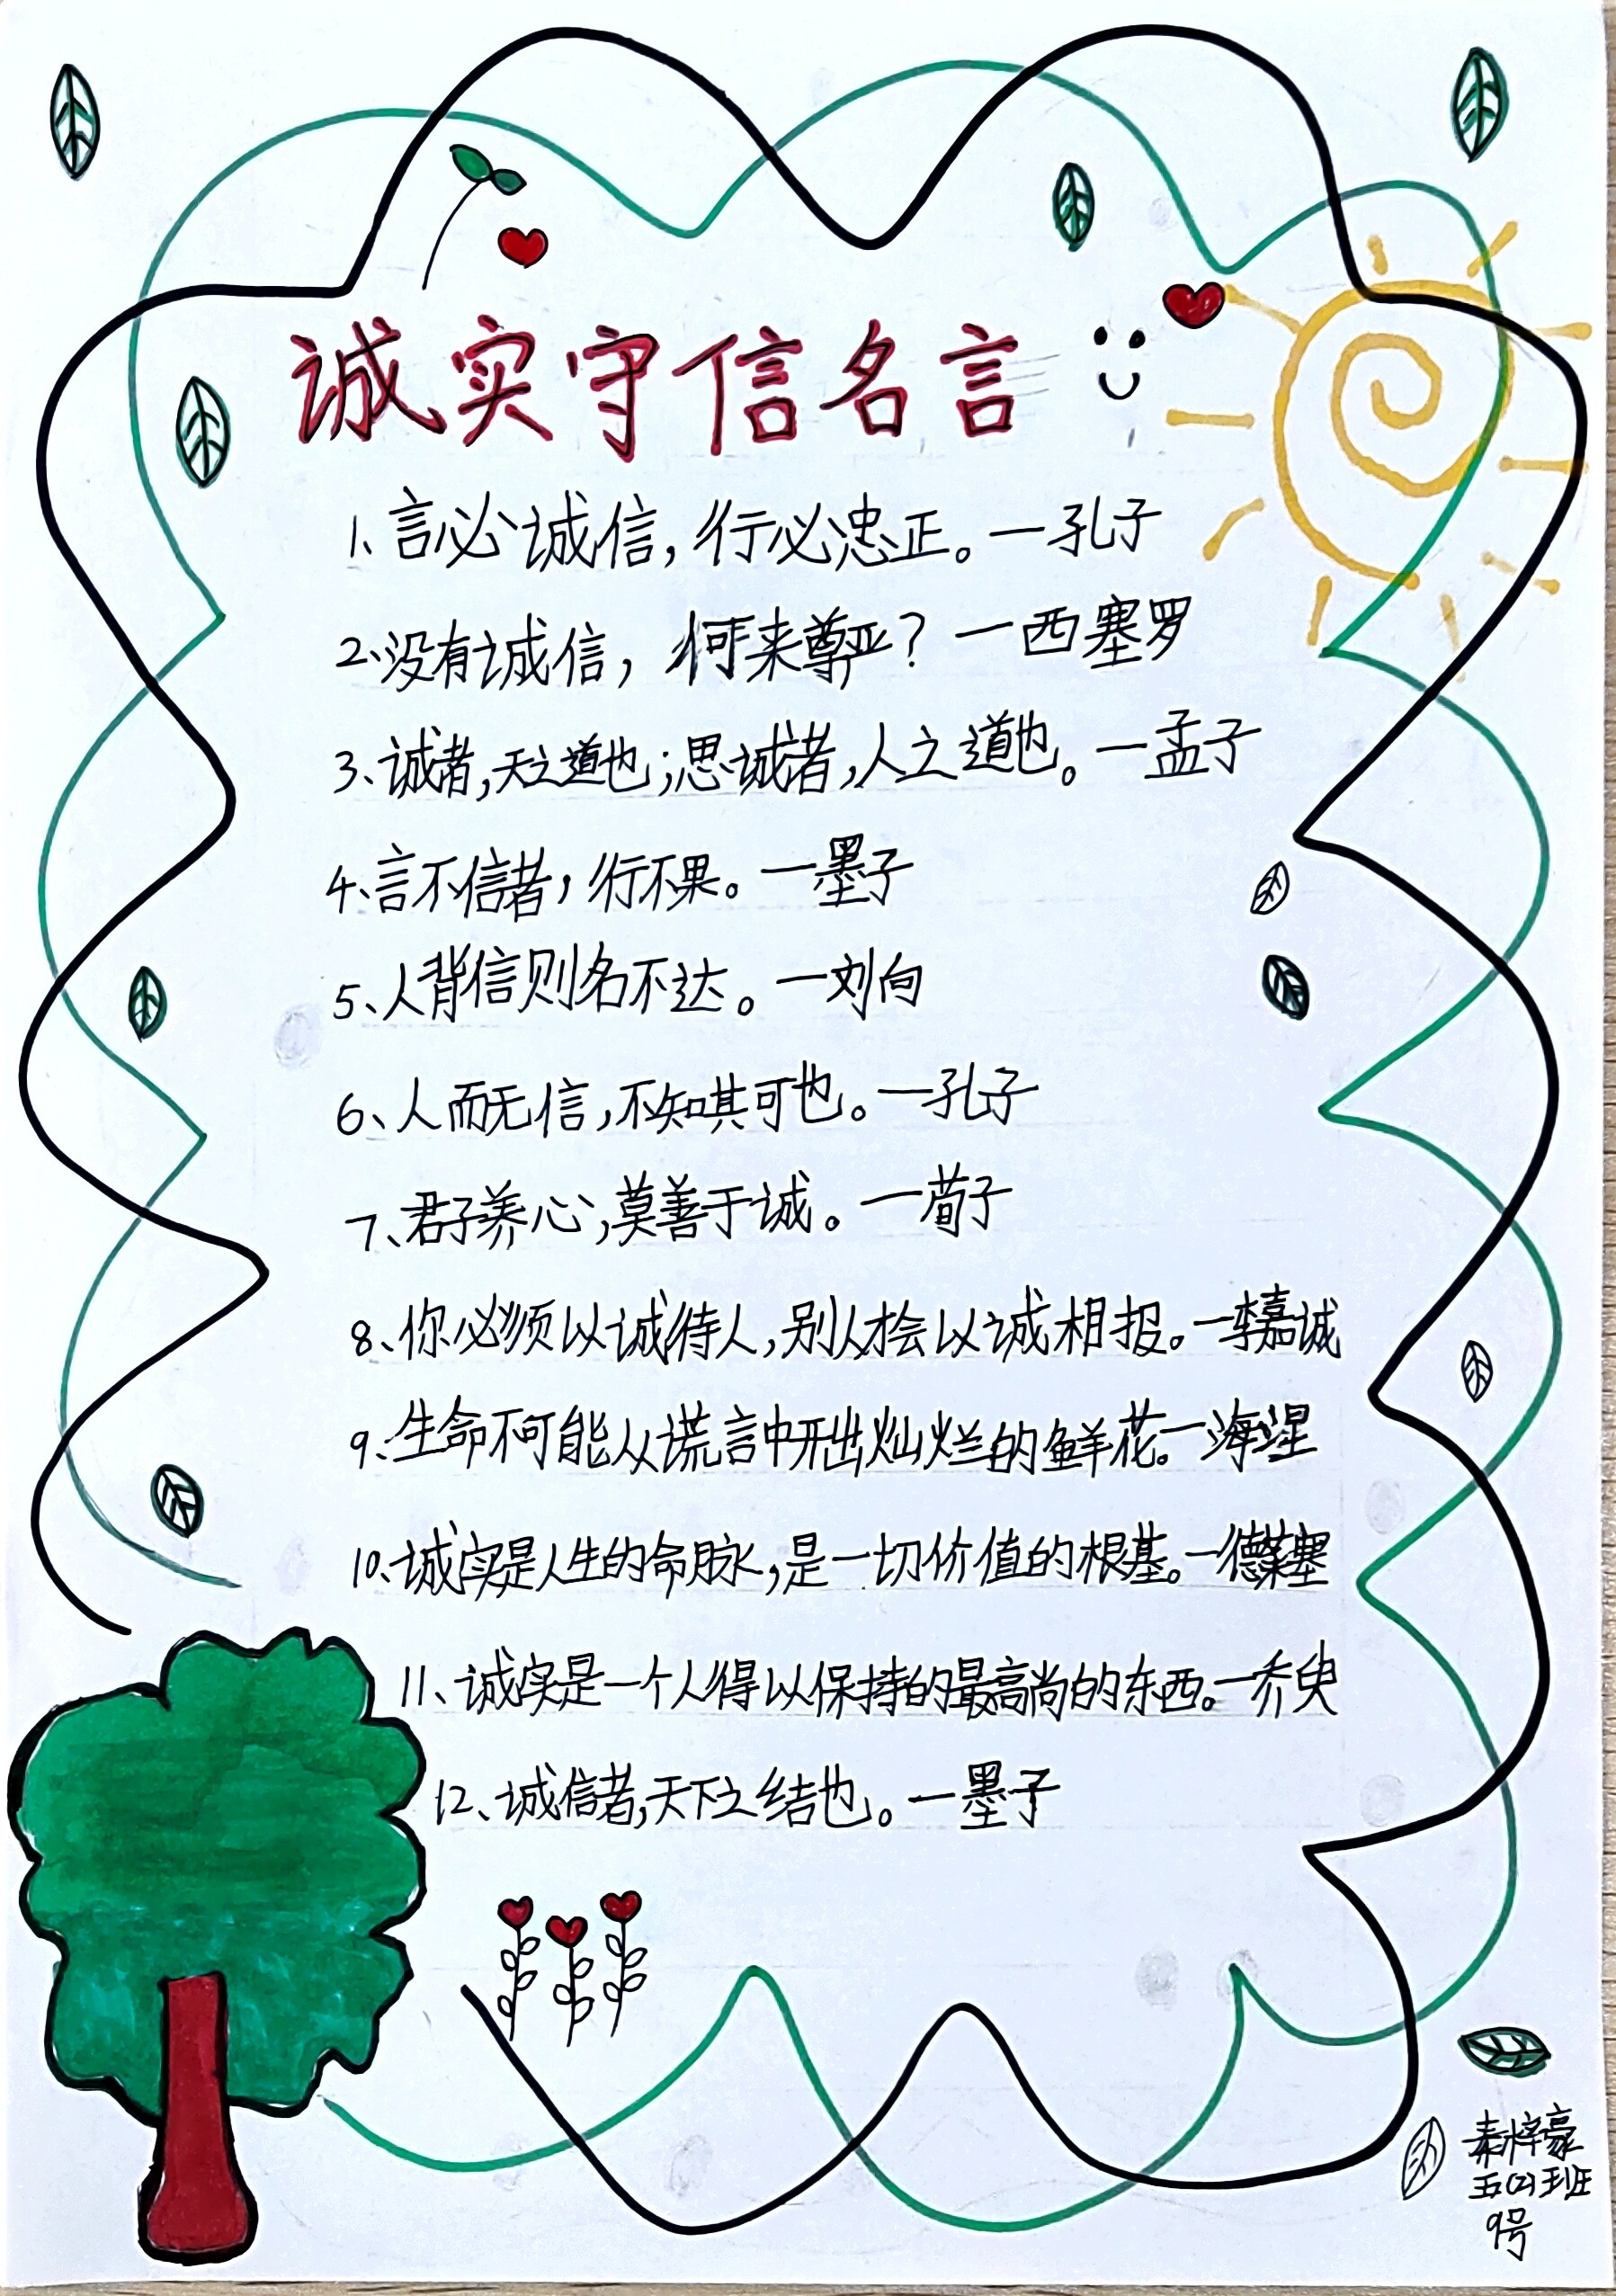 诚实守信名言
1、言必诚信，行必忠正。一孔子
2、没有诚信，何来尊严？一西塞罗
3、诚者，天之道也；思诚者，人之道也。一孟子
4、言不信者，行不果。一墨子
5、人背信则名不达。一刘向
6、人而无信，不知其可也。一孔子
7、君子养心，莫善于诚。一荀子
8、你必须以诚待人，别人才会以诚相报。一李嘉诚
9、生命不可能从谎言中开出灿烂的鲜花。一海涅
10、诚实是人生的命脉，是一切价值的根基。一德莱塞
11、诚实是一个人得以保持的最高尚的东西。一乔叟
12、诚信者，天下之结也。一墨子
秦梓豪
五(2)班
9号